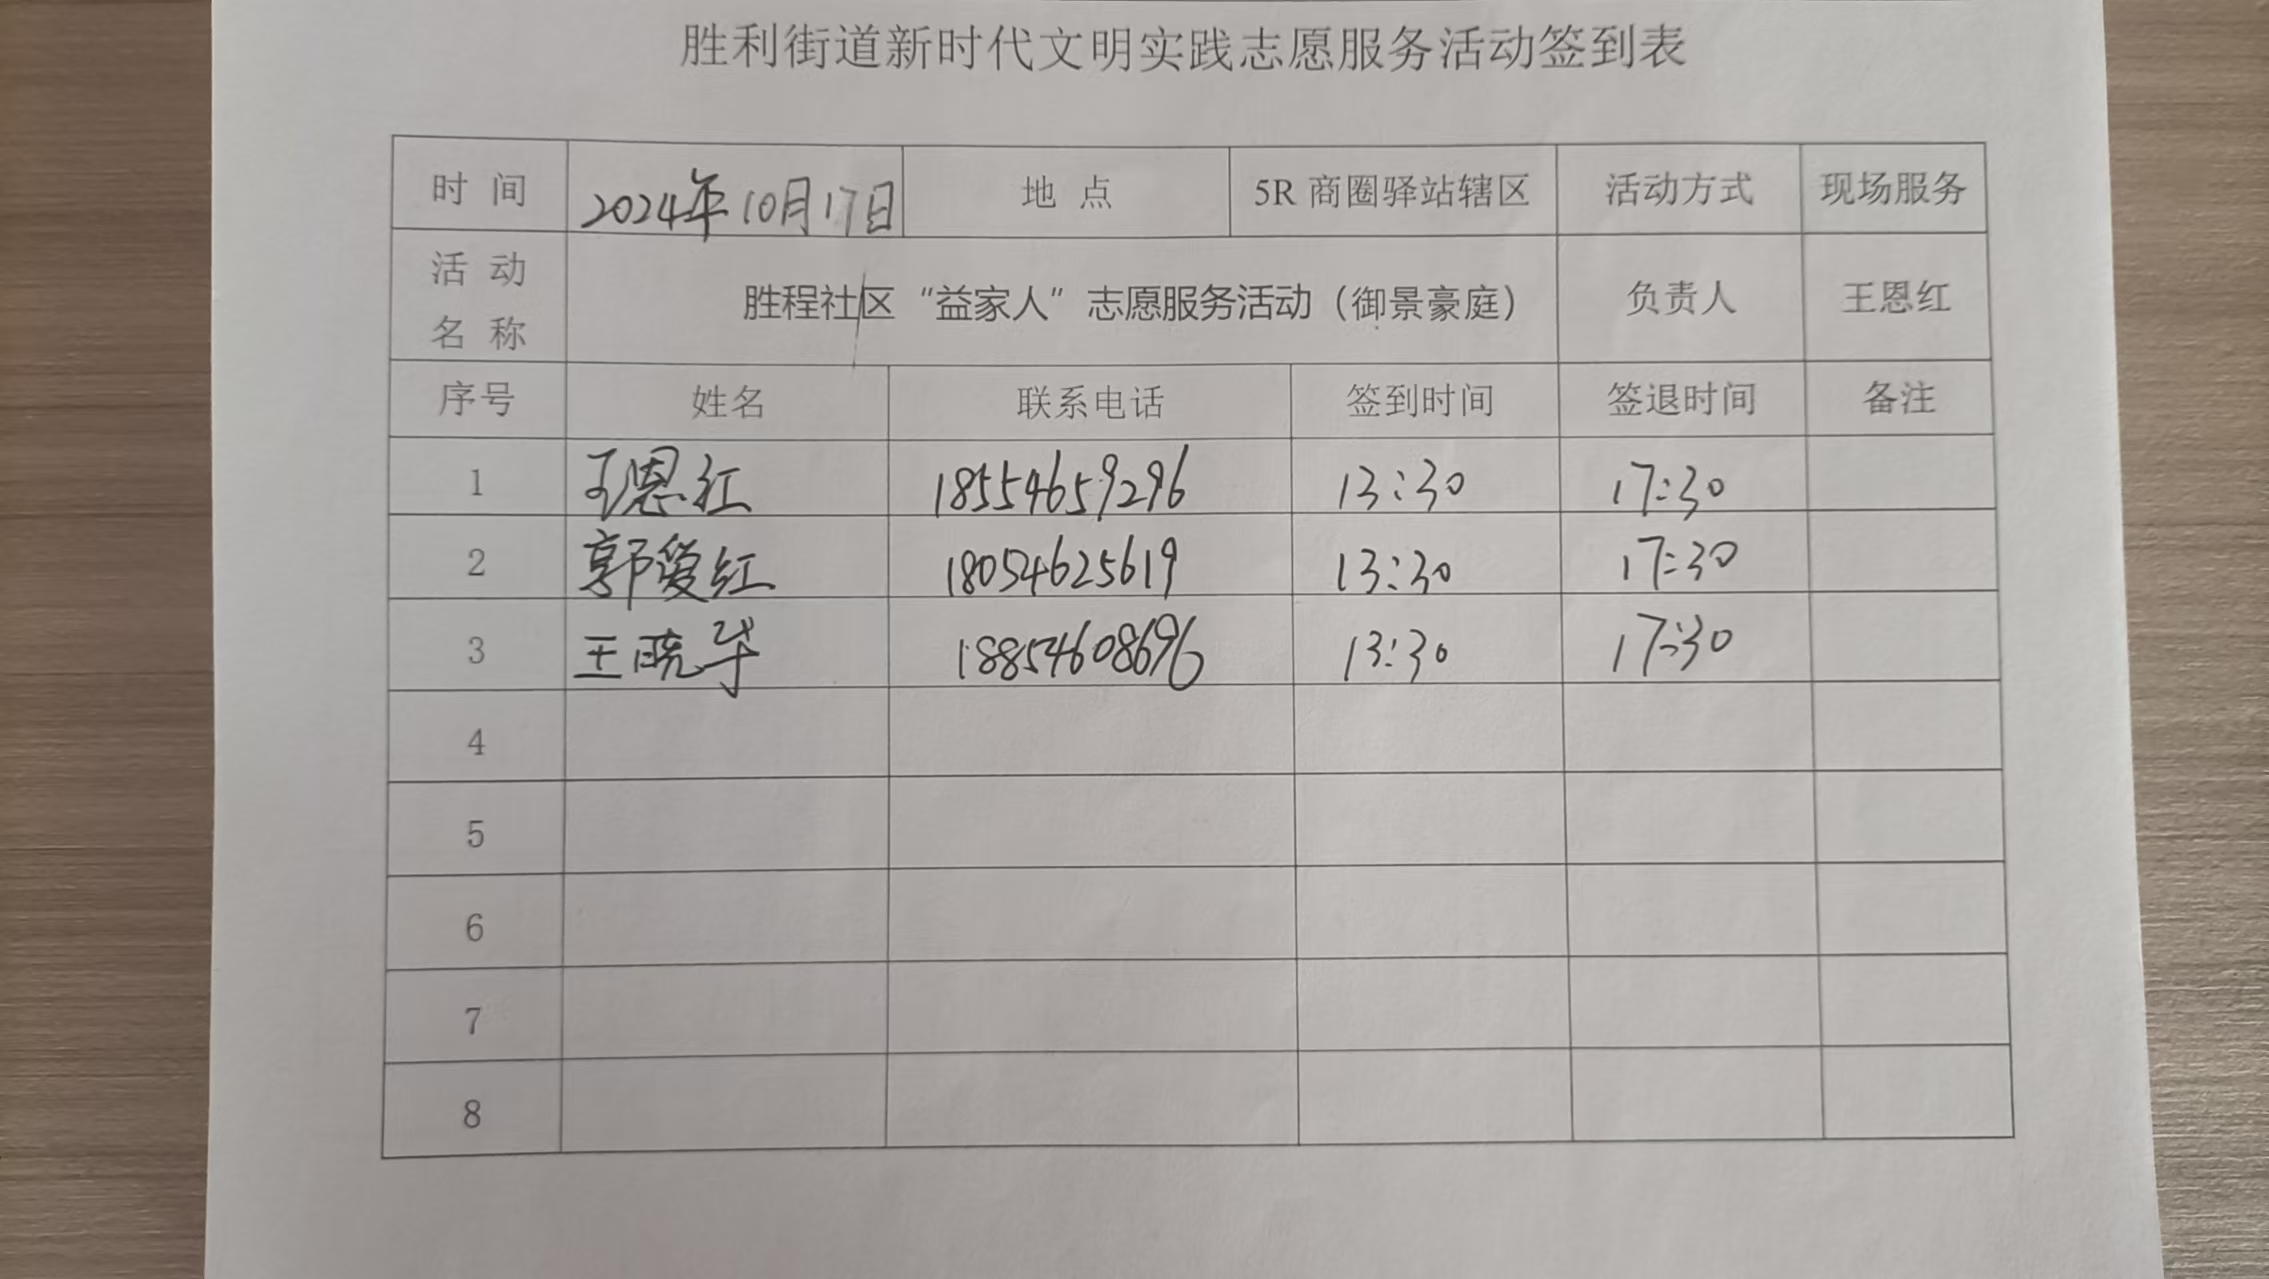 胜利街道新时代文明实践志愿服务活动签到表
时 间 2024年10月17日 地 点 5R 商圈驿站辖区 活动方式 现场服务
活 动
名 称 胜程社区“益家人”志愿服务活动（御景豪庭） 负责人 王恩红
序号 姓名 联系电话 签到时间 签退时间 备注
1 王恩红 18554659296 13:30 17:30
2 郭爱红 18054625619 13:30 17:30
3 王晓华 18854608696 13:30 17:30
4
5
6
7
8